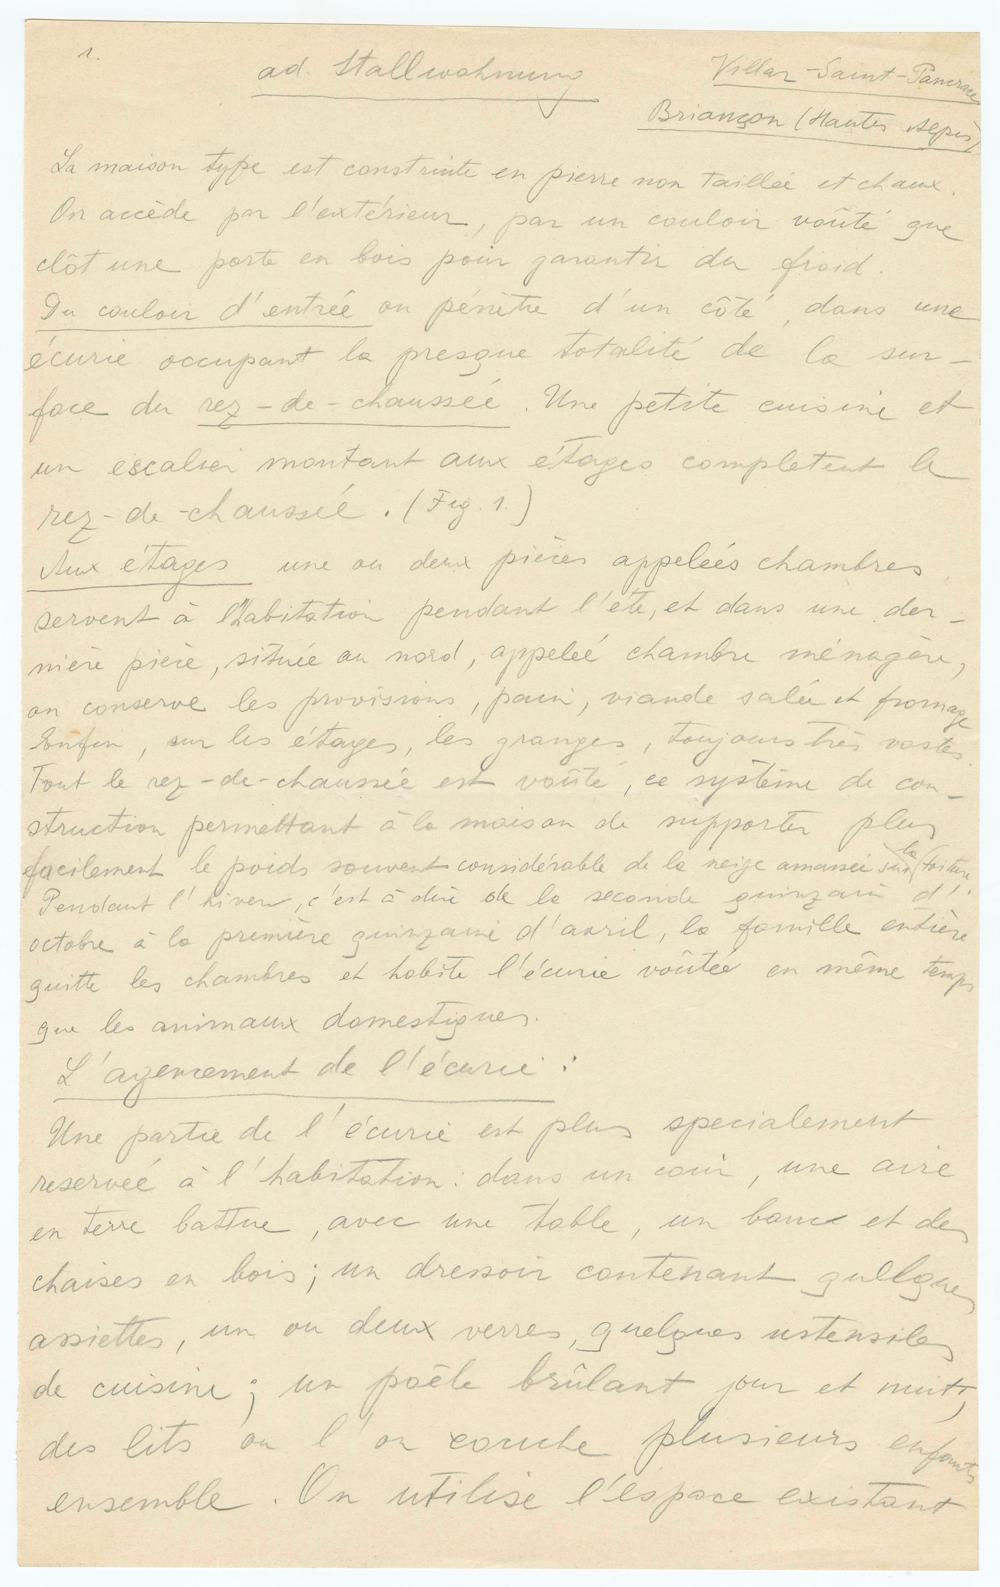 1.
ad. Stallwohnung
Villar-Saint-Pancrace
Briançon (Hautes Alpes)
La maison type est construite en pierre non taillée et chaux.
On accède par l'extérieur, par un couloir voûté que
clôt une porte en bois pour garantir du froid.
Du couloir d'entrée on pénètre d'un côté, dans une
écurie occupant la presque totalité de la sur-
face du rez-de-chaussée. Une petite cuisine et
un escalier montant aux étages completent le
rez-de-chaussée. (Fig. 1.)
Aux étages une ou deux pièces appelées chambres
servent à l'habitation pendant l'été, et dans une der-
nière pièce, située au nord, appelée chambre ménagère,
on conserve les provisions, pain, viande salée et fromage
Enfin, sur les étages, les granges, toujours très vastes.
Tout le rez-de-chaussée est voûté, ce système de con-
struction permettant à la maison de supporter plus
facilement le poids souvent considérable de la neige amassée sur la toiture.
Pendant l'hiver, c'est à dire de la seconde quinzaine d'
octobre à la première quinzaine d'avril, la famille entière
quitte les chambres et habite l'écurie voûtée en même temps
que les animaux domestiques.
L'agencement de l'écurie :
Une partie de l'écurie est plus specialement
reservée à l'habitation : dans un coin, une aire
en terre battue, avec une table, un banc et des
chaises en bois; un dressoir contenant quelques
assiettes, un ou deux verres, quelques ustensiles
de cuisine; un poêle brûlant jour et nuit,
des lits où l'on couche plusieurs enfants
ensemble. On utilise l'espace existant